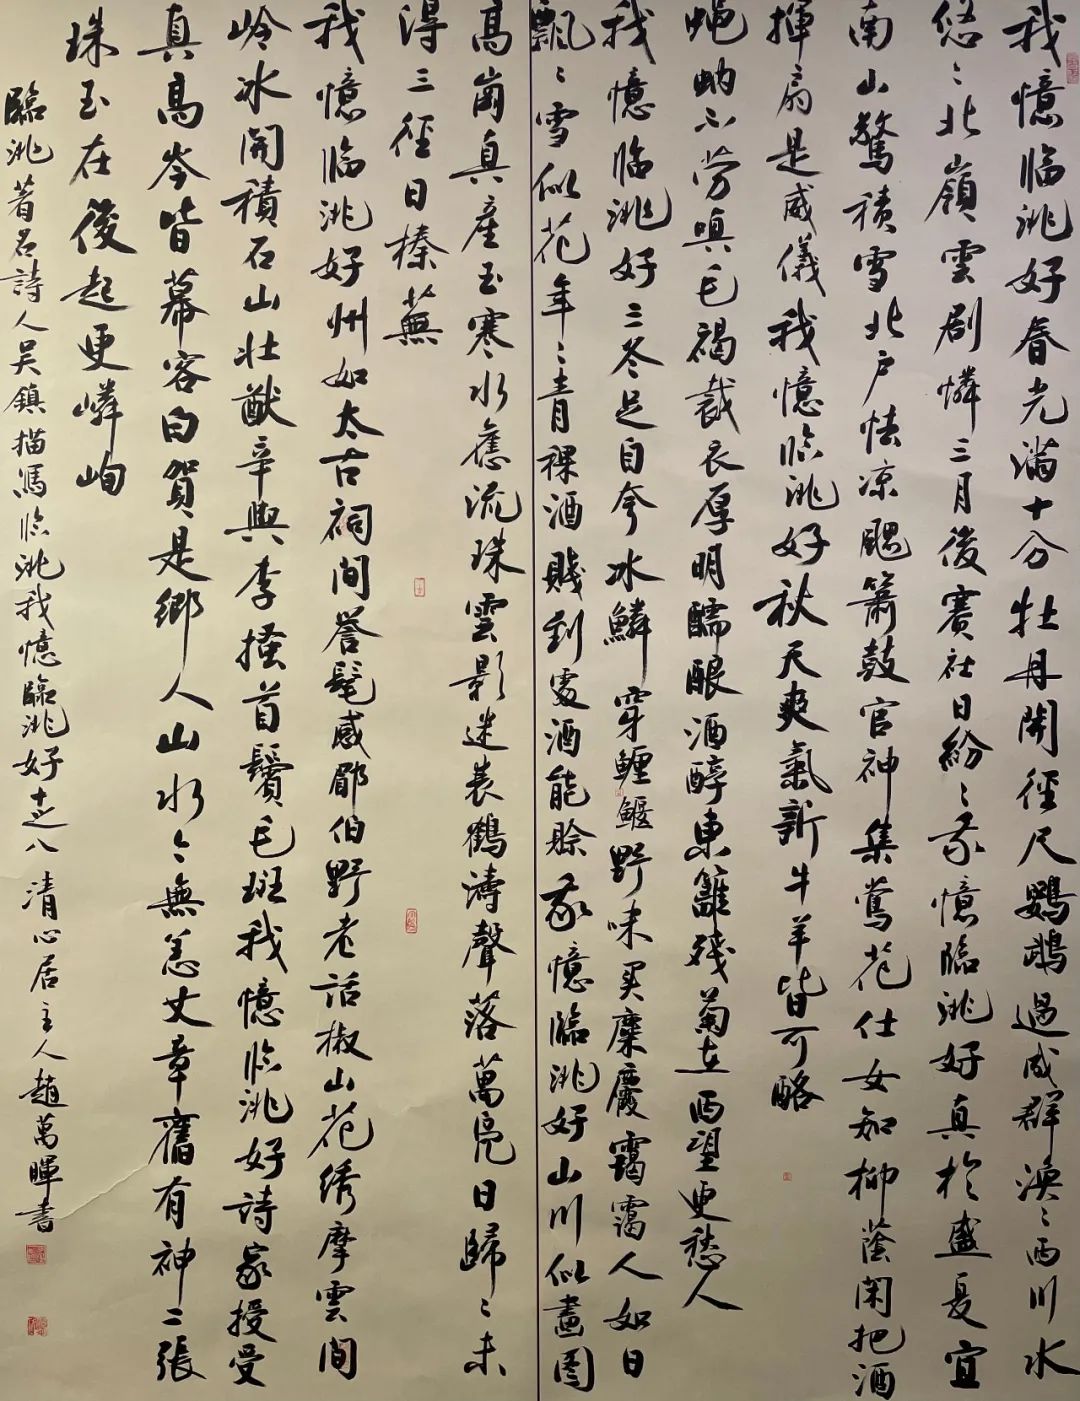 我憶临洮好春光满十分牡丹開徑尺鸚鵡過成群渙〻西川水
悠〻北嶺雲剧憐三月後賽社日紛〻我憶臨洮好真於盛夏宜
南山驚積雪北户怯凉颸簫鼓官神集鶯花仕女知柳蔭闲把酒
揮扇是威儀我憶临洮好秋天爽氣新牛羊皆可酪
蝇蚋不劳嗔毛褐裁衣厚明醹酿酒醇東籬殘菊在西望更愁人
我憶临洮好三冬足自夸冰鳞穿鱣鰋野味买麋麖靄靄人如日
飄〻雪似花年〻青稞酒賤到處酒能賒我憶臨洮好山川似畫图
高崗真産玉寒水舊流珠雲影迷蓑鶴濤聲落萬凫日歸〻未
得三徑日榛蕪
我憶临洮好州如太古祠间誉髦感郿伯野老話椒山花绣摩雲间
岭冰開積石山壮猷辛與李搔首鬢毛斑我憶临洮好詩家授受
真高岑皆幕客白賀是鄉人山水〻無恙文章舊有神二張
珠玉在後起更嶙峋
臨洮著名詩人吴鎮描寫临洮我憶臨洮好十之八清心居主人趙萬暉書